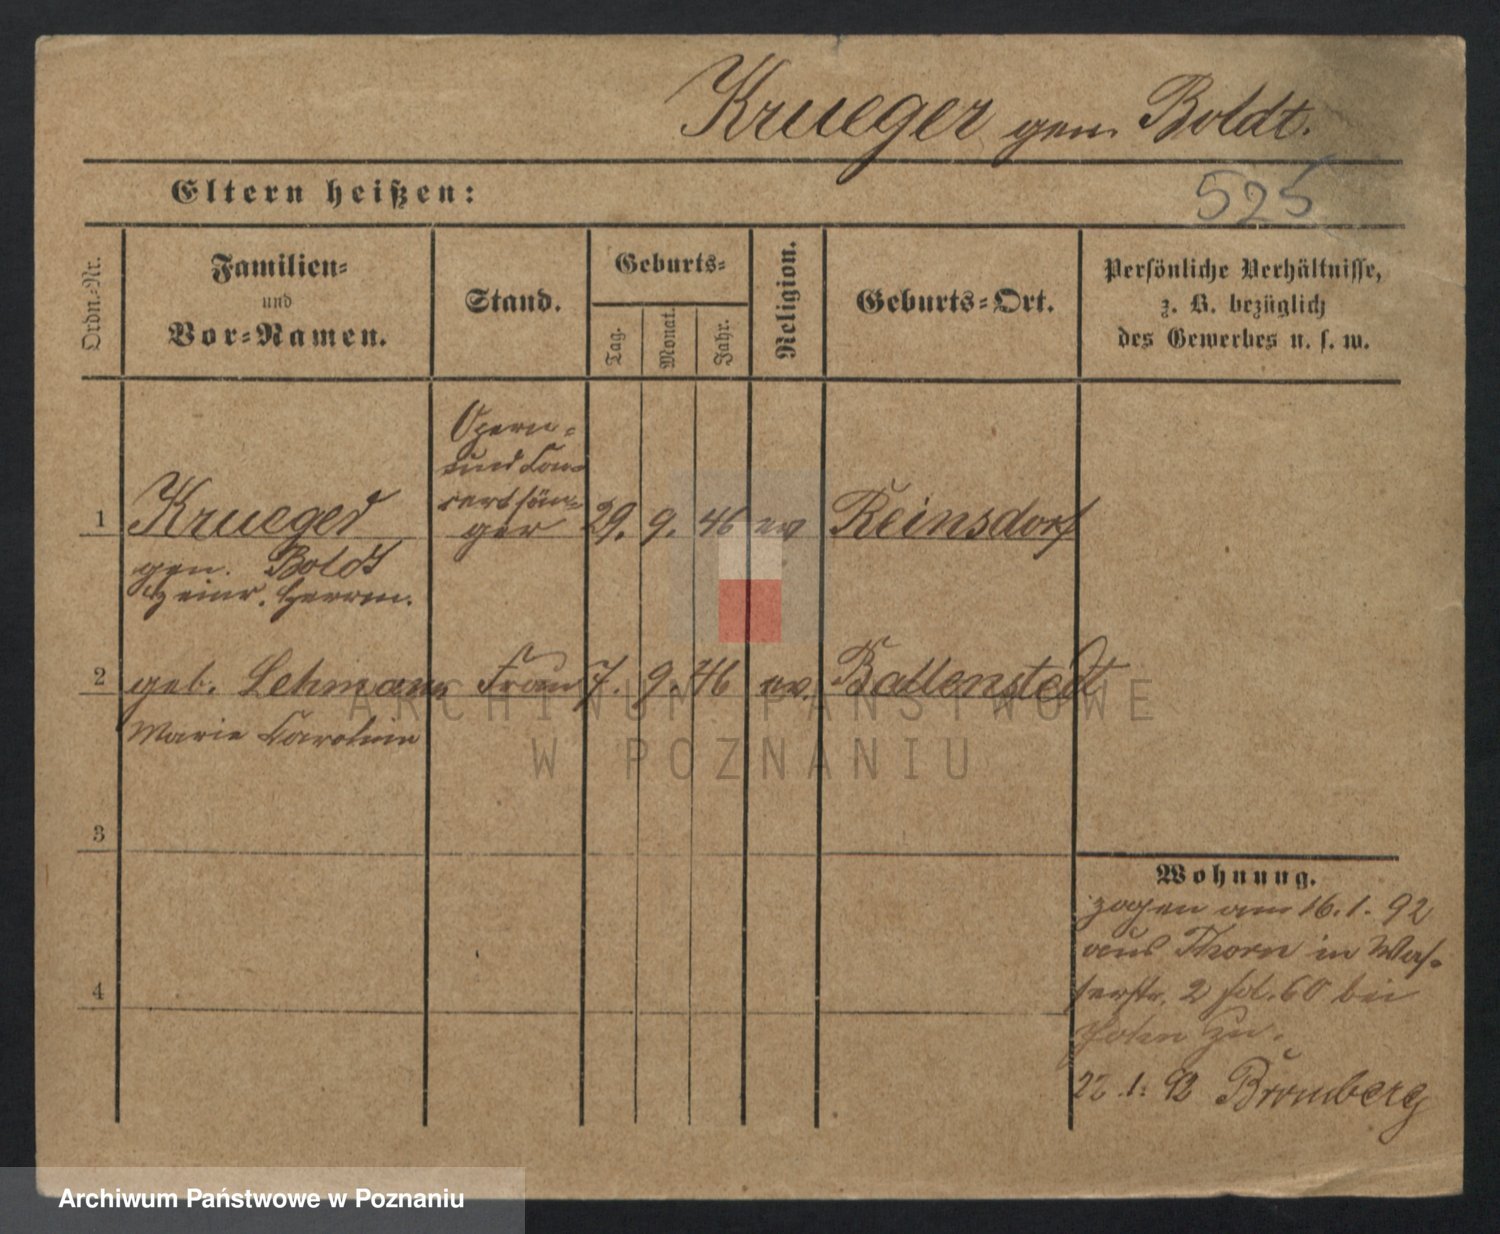 Krueger gen. Boldt.
Eltern heißen:
525
Ordn.-Nr.
Familien-
und
Vor-Namen.
Stand.
Geburts-
Tag.
Monat.
Jahr.
Religion.
Geburts-Ort.
Persönliche Verhältnisse,
z. B. bezüglich
des Gewerbes u. s. w.
Opern-
und Con-
certsän-
1 Krueger ger 29. 9. 46 ev Reinsdorf
gen. Boldt
Heinr. Herrm.
2 geb. Lehmann Frau 7. 9. 46 ev. Ballenstedt
Marie Caroline
3
4
Wohnung.
zogen am 16.1.92
aus Thorn in Was-
serstr. 2 bei
zu.
22.1.92 Bromberg
ARCHIWUM PAŃSTWOWE
W POZNANIU
Archiwum Państwowe w Poznaniu